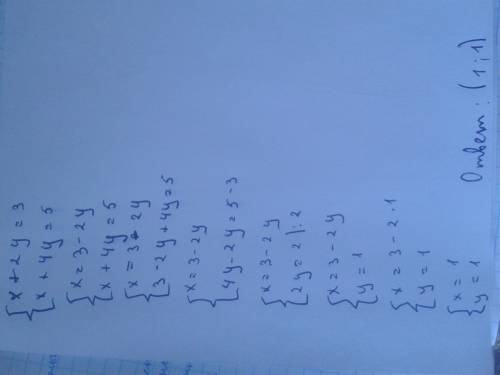 { x + 2y = 3
x + 4y = 5
{ x = 3 - 2y
x + 4y = 5
{ x = 3 - 2y
3 - 2y + 4y = 5
{ x = 3 - 2y
4y - 2y = 5 - 3
{ x = 3 - 2y
2y = 2 | : 2
{ x = 3 - 2y
y = 1
{ x = 3 - 2 · 1
y = 1
{ x = 1
y = 1
Ответ: (1; 1)